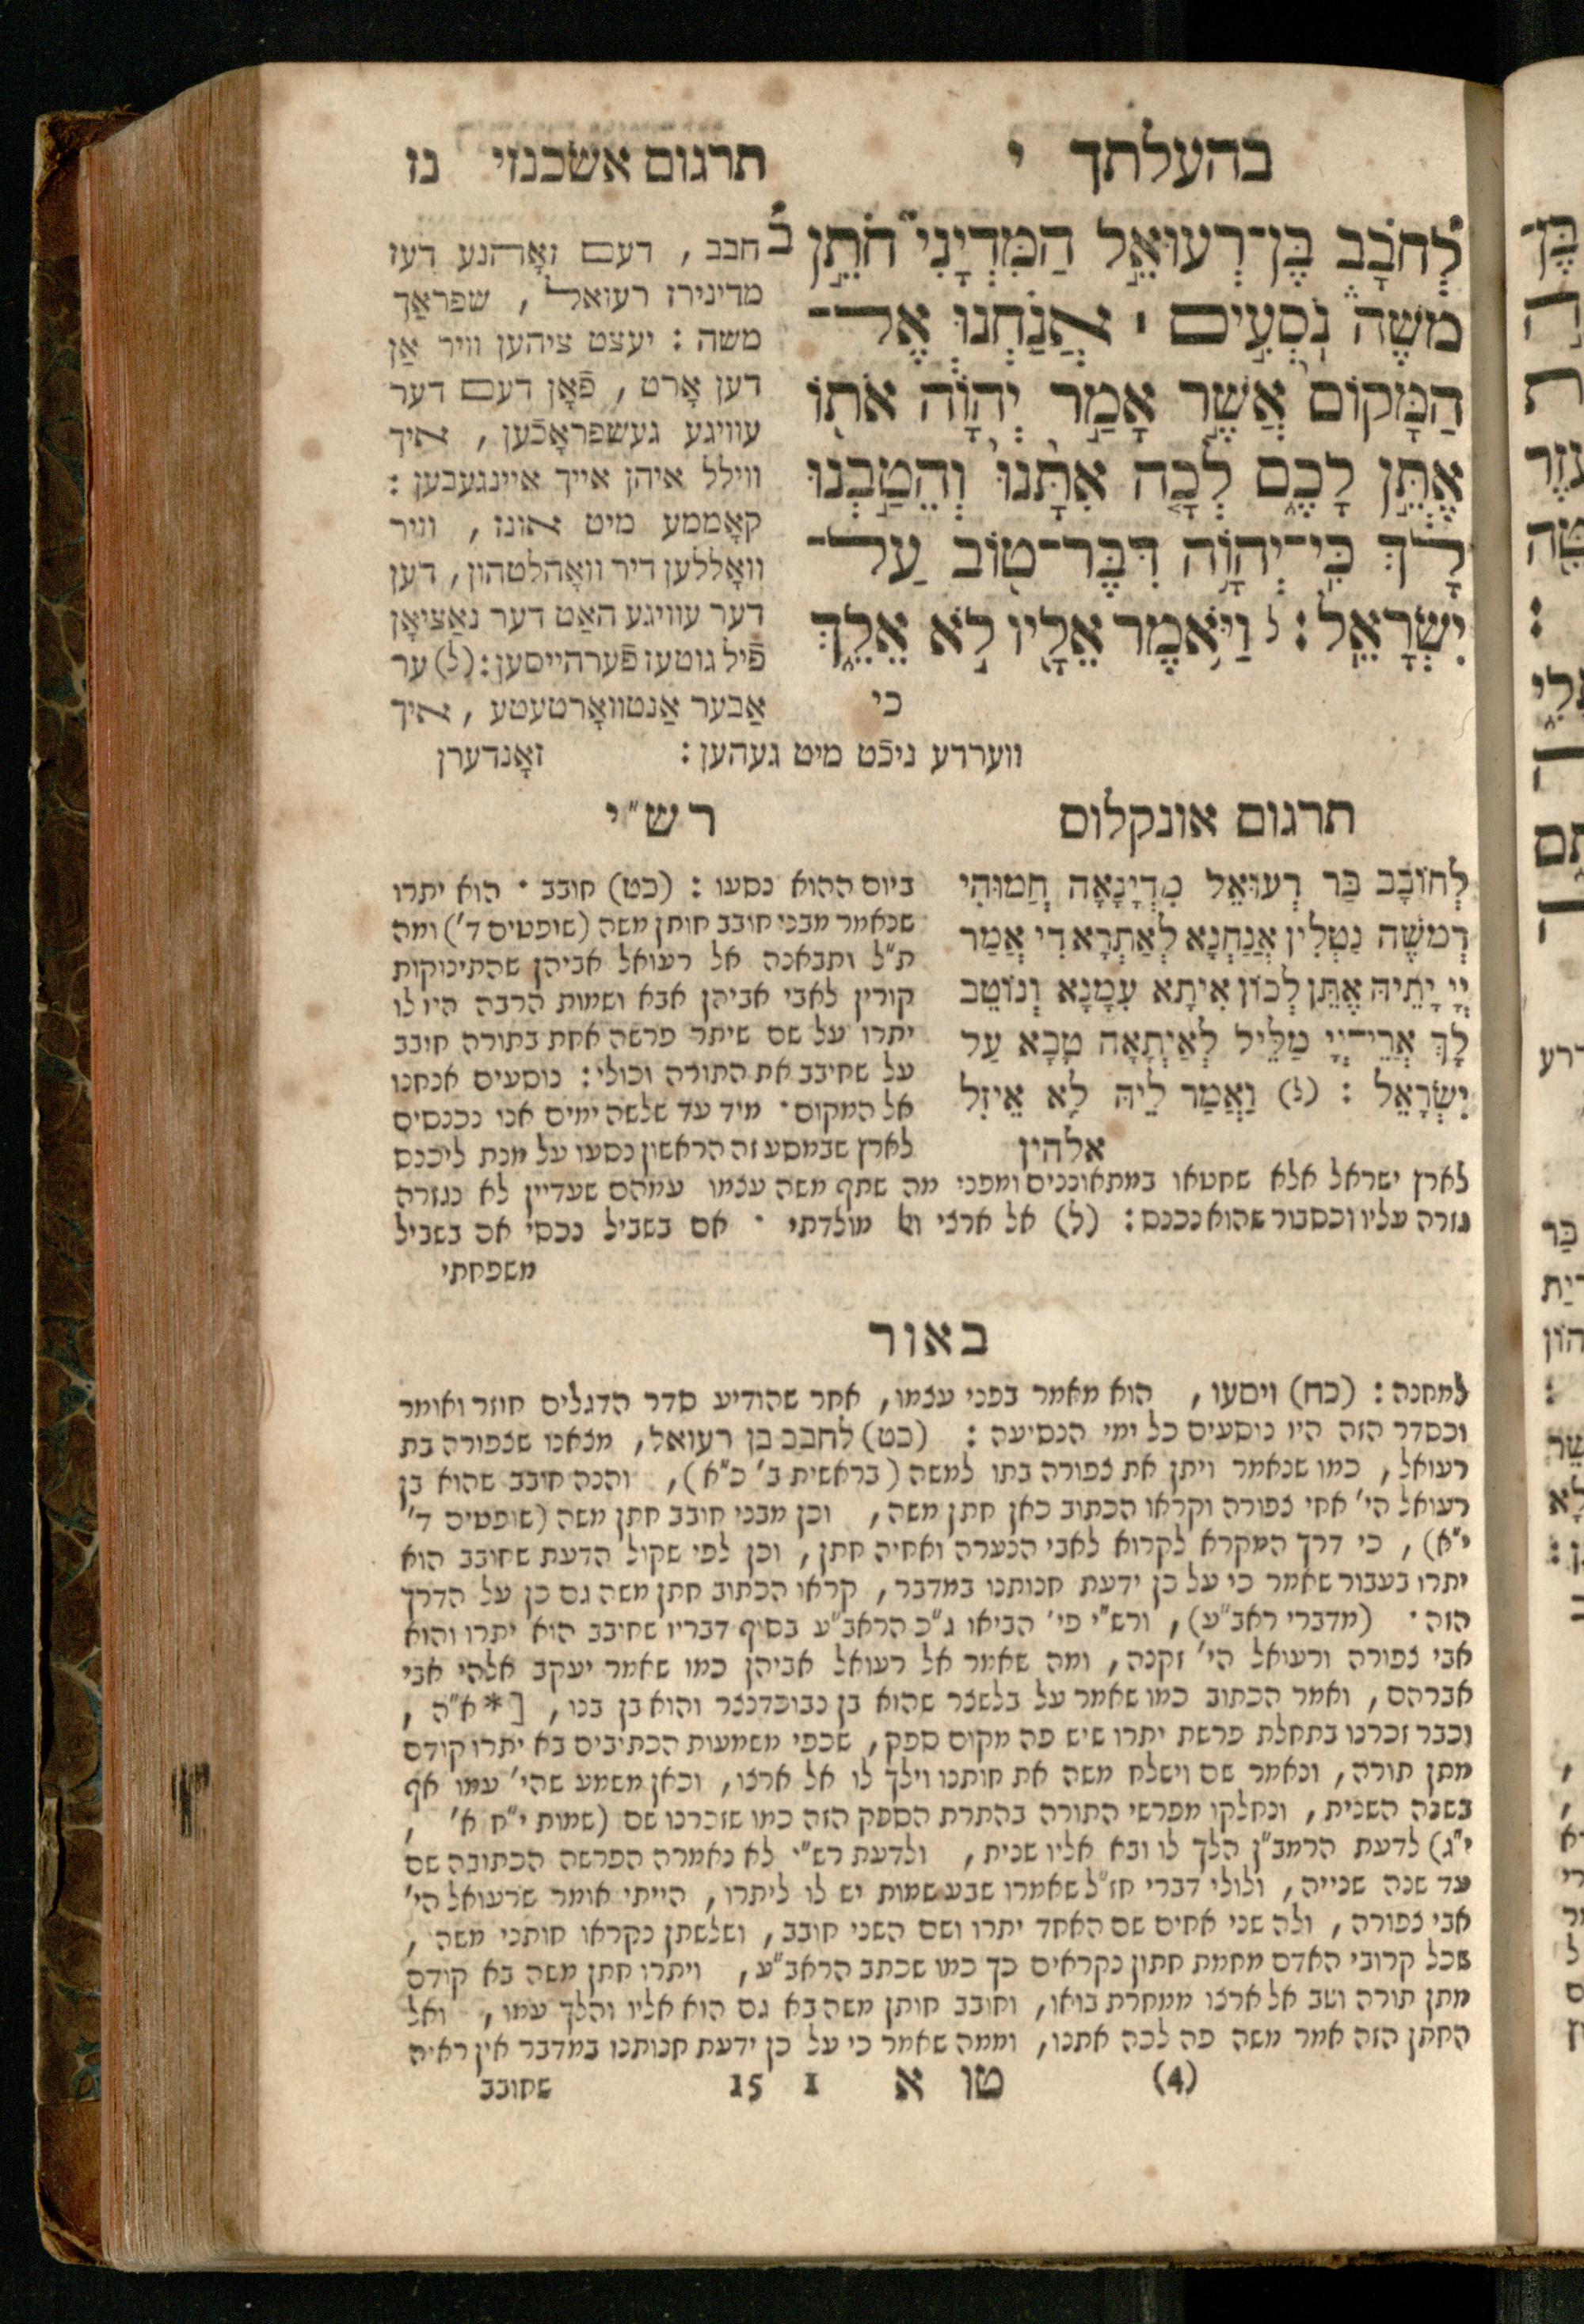 בהעלתך י תרגום אשכנזי נז
לְחֹבָ֗ב בֶּן־רְעוּאֵ֣ל הַמִּדְיָנִי֮ חֹתֵ֣ן
מֹשֶׁה֒ נֹסְעִ֣ים ׀ אֲנַ֗חְנוּ אֶל־
הַמָּקוֹם֙ אֲשֶׁ֣ר אָמַ֣ר יְהוָ֔ה אֹת֖וֹ
אֶתֵּ֣ן לָכֶ֑ם לְכָ֤ה אִתָּ֙נוּ֙ וְהֵטַ֣בְנוּ
לָ֔ךְ כִּֽי־יְהוָ֥ה דִּבֶּר־ט֖וֹב עַל־
יִשְׂרָאֵֽל׃ ל וַיֹּ֥אמֶר אֵלָ֖יו לֹ֣א אֵלֵ֑ךְ
כי
חבב, דעם זאָהנע דעז
מדינירז רעואל, שפראַך
משה: יעצט ציהען וויר אַן
דען אָרט, פֿאָן דעם דער
עוויגע געשפראָכֿען, איך
ווילל איהן אייך איינגעבען:
קאָממע מיט אונז, וויר
וואָללען דיר וואָהלטהון, דען
דער עוויגע האַט דער נאַציאָן
פֿיל גוטעז פֿערהייסען: (ל) ער
אַבער אַנטוואָרטעטע, איך
ווערדע ניכֿט מיט געהען: זאָנדערן
תרגום אונקלוס
לְחוֹבָב בַּר רְעוּאֵל מִדְיָנָאָה חֲמוּהִי
דְמֹשֶׁה נַטְלִין אֲנַחְנָא לְאַתְרָא דִי אֲמַר
יְיָ יָתֵיהּ אֶתֵּן לְכוֹן אִיתָא עִמָּנָא וְנוֹטֵב
לָךְ אֲרֵי יְיָ מַלֵּיל לְאַיְתָאָה טָבָא עַל
יִשְׂרָאֵל: (ל) וַאֲמַר לֵיהּ לָא אֵיזִל
אלהין
רש"י
ביום ההוא נסעו: (כט) חובב · הוא יתרו
שנאמר מבני חובב חותן משה (שופטים ד') ומה
ת"ל ותבאנה אל רעואל אביהן שהתינוקות
קורין לאבי אביהן אבא ושמות הרבה היו לו
יתרו על שם שיתר פרשה אחת בתורה חובב
על שחיבב את התורה וכולי: נוסעים אנחנו
אל המקום · מיד עד שלשה ימים אנו נכנסים
לארץ שבמסע זה הראשון נסעו על מנת ליכנס
לארץ ישראל אלא שחטאו במתאוננים ומפני מה שתף משה עצמו עמהם שעדיין לא נגזרה
גזרה עליו וכסבור שהוא נכנס: (ל) אל ארצי ו מולדתי · אם בשביל נכסי אם בשביל
משפחתי
באור
למחנה: (כח) ויסעו, הוא מאמר בפני עצמו, אחר שהודיע סדר הדגלים חוזר ואומר
וכסדר הזה היו נוסעים כל ימי הנסיעה: (כט) לחבב בן רעואל, מצאנו שצפורה בת
רעואל, כמו שנאמר ויתן את צפורה בתו למשה (בראשית ב' כ"א), והנה חובב שהוא בן
רעואל הי' אחי צפורה וקראו הכתוב כאן חתן משה, וכן מבני חובב חתן משה (שופטים ד'
י"א), כי דרך המקרא לקרוא לאבי הנערה ואחיה חתן, וכן לפי שקול הדעת שחובב הוא
יתרו בעבור שאמר כי על כן ידעת חנותנו במדבר, קראו הכתוב חתן משה גם כן על הדרך
הזה · (מדברי ראב"ע), ורש"י פי' הביאו ג"כ הראב"ע בסוף דבריו שחובב הוא יתרו והוא
אבי צפורה ורעואל הי' זקנה, ומה שאמר אל רעואל אביהן כמו שאמר יעקב אלהי אבי
אברהם, ואמר הכתוב כמו שאמר על בלשצר שהוא בן נבוכדנצר והוא בן בנו, [* א"ה,
וכבר זכרנו בתחלת פרשת יתרו שיש פה מקום ספק, שכפי משמעות הכתיבים בא יתרו קודם
מתן תורה, ונאמר שם וישלח משה את חותנו וילך לו אל ארצו, וכאן משמע שהי' עמו אף
בשנה השנית, ונחלקו מפרשי התורה בהתרת הספק הזה כמו שזכרנו שם (שמות י"ח א',
י"ג) לדעת הרמב"ן הלך לו ובא אליו שנית, ולדעת רש"י לא נאמרה הפרשה הכתובה שם
עד שנה שנייה, ולולי דברי חז"ל שאמרו שבע שמות יש לו ליתרו, הייתי אומר שרעואל הי'
אבי צפורה, ולה שני אחים שם האחד יתרו ושם השני חובב, ושלשתן נקראו חותני משה,
שכל קרובי האדם מחמת חתון נקראים כך כמו שכתב הראב"ע, ויתרו חתן משה בא קודם
מתן תורה ושב אל ארצו ממחרת בואו, וחובב חותן משה בא גם הוא אליו והלך עמו, ואל
החתן הזה אמר משה פה לכה אתנו, וממה שאמר כי על כן ידעת חנותנו במדבר אין ראיה
(4) טו א 1 15 שחובב